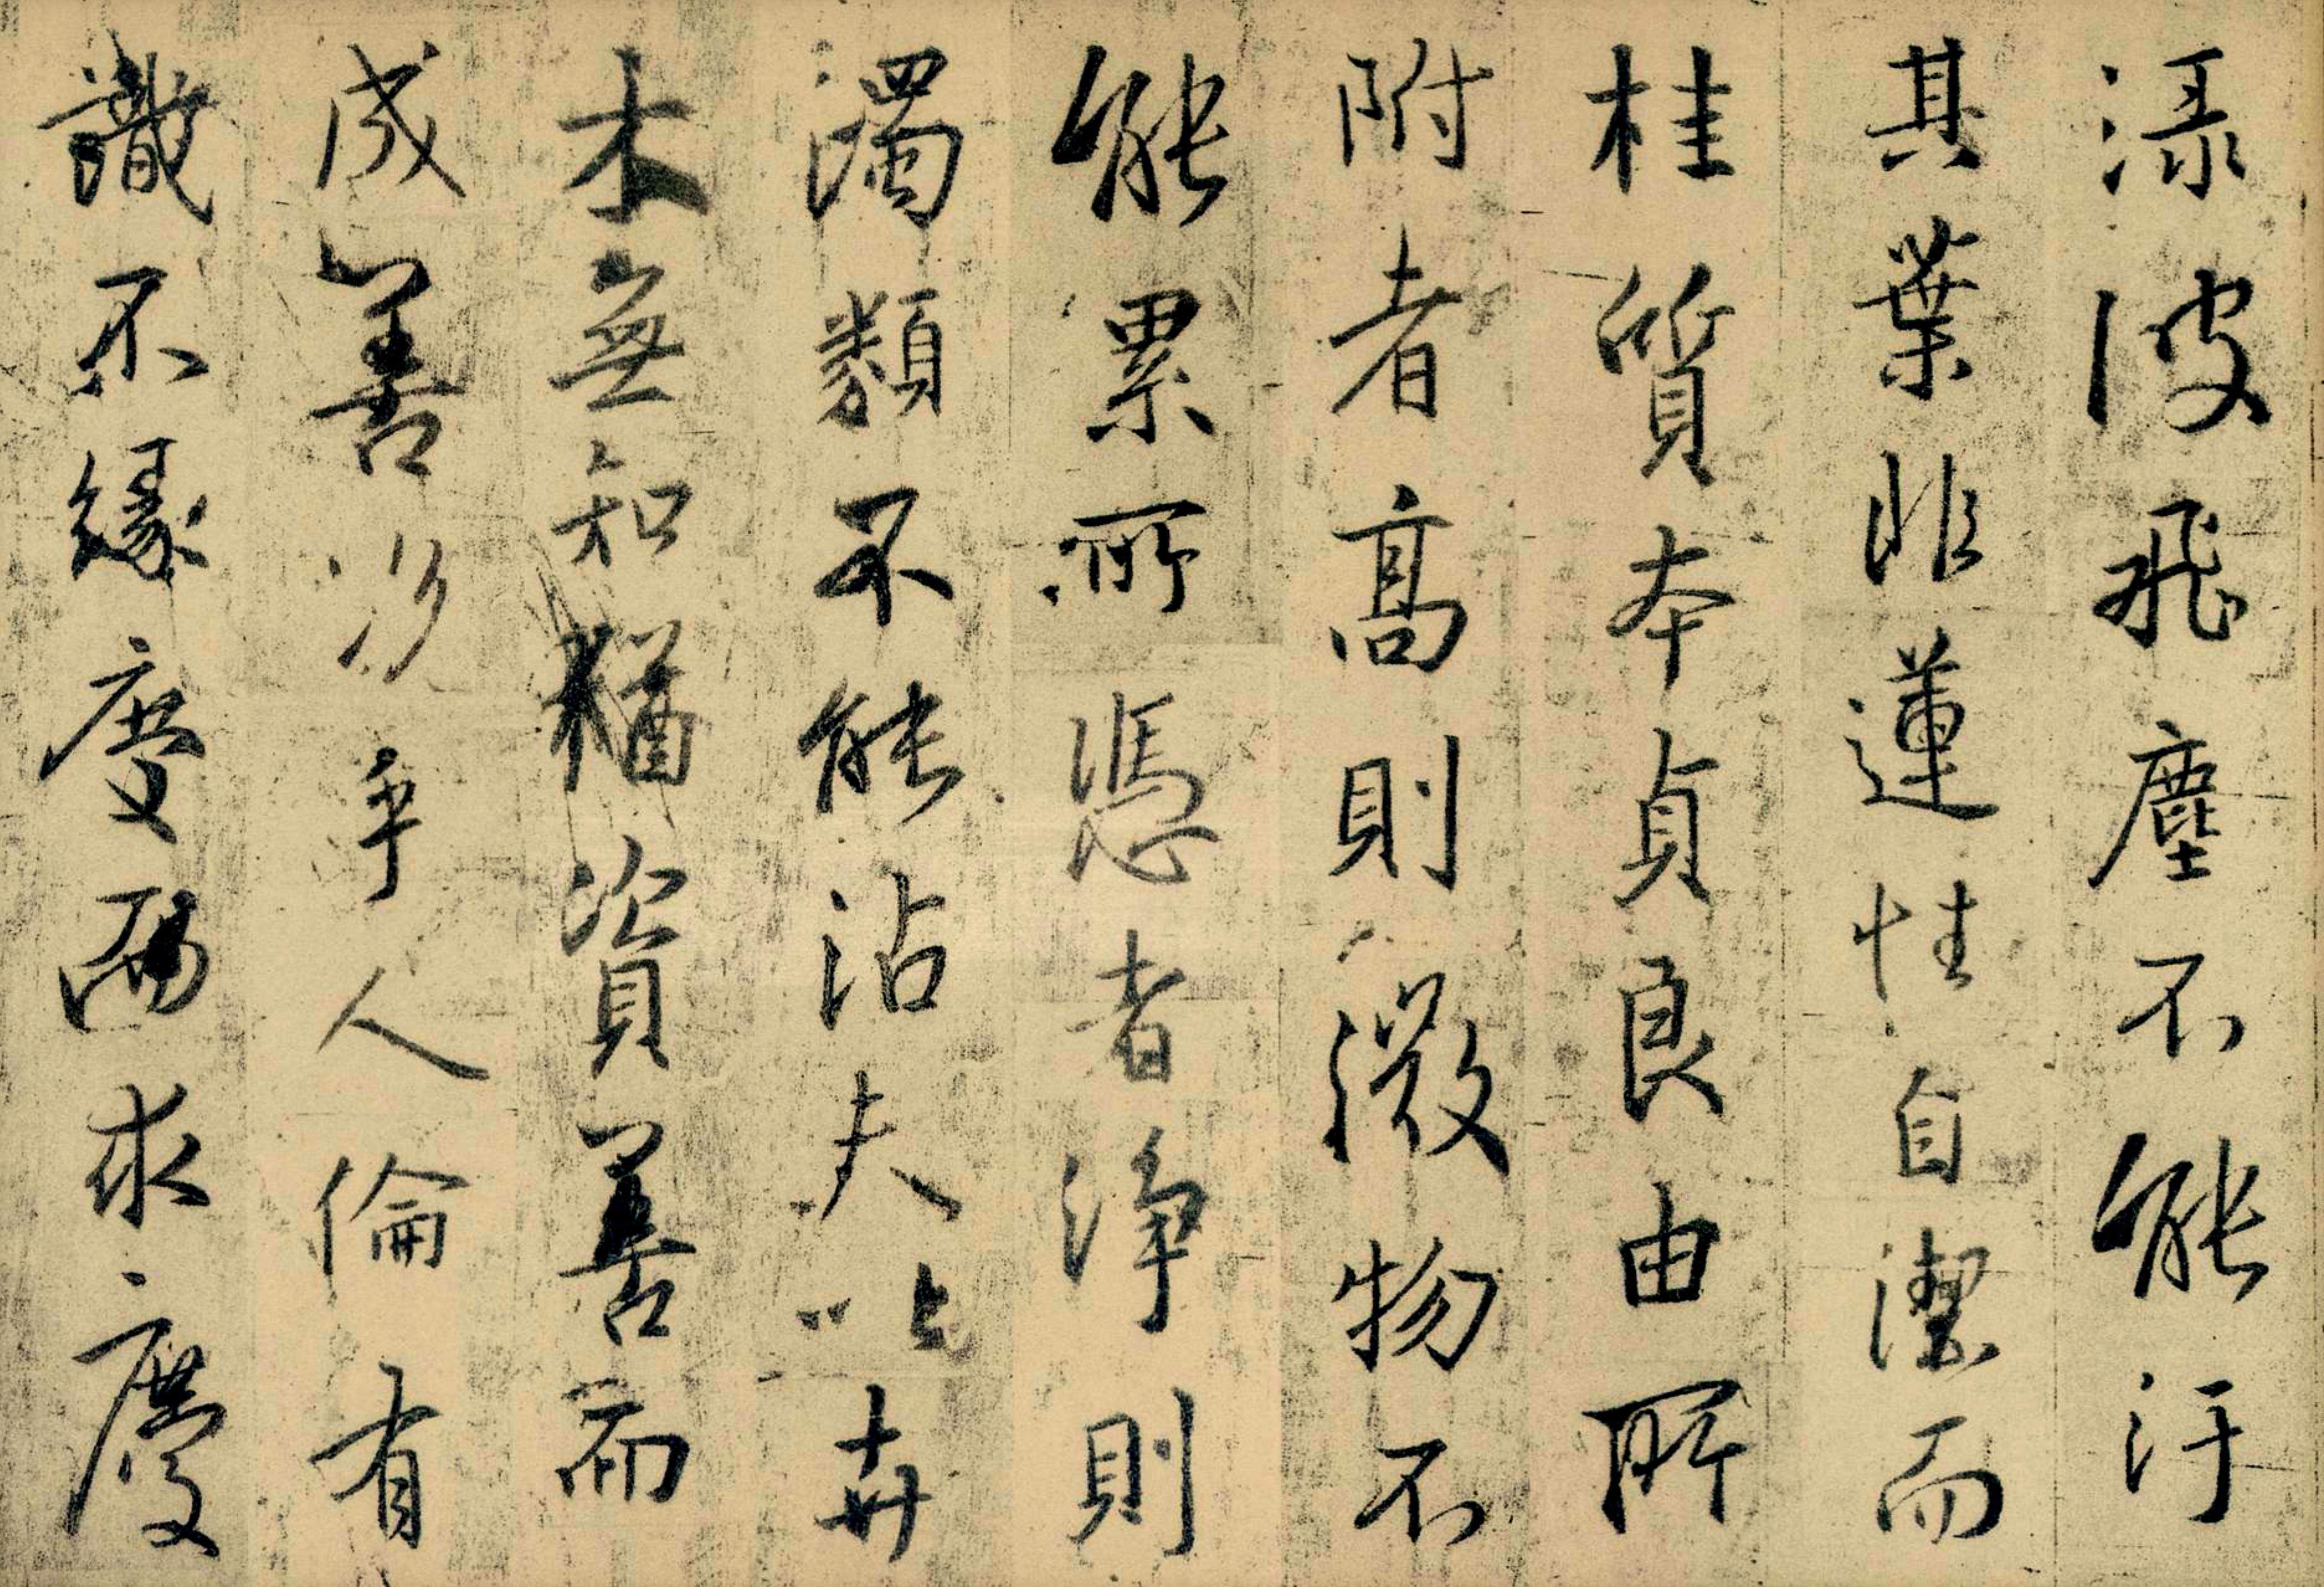 淥波飛塵不能汙
其葉非蓮性自潔而
桂質本貞良由所
附者高則微物不
能累所憑者淨則
濁類不能沾夫以卉
木無知猶資善而
成善況乎人倫有
識不緣慶而求慶